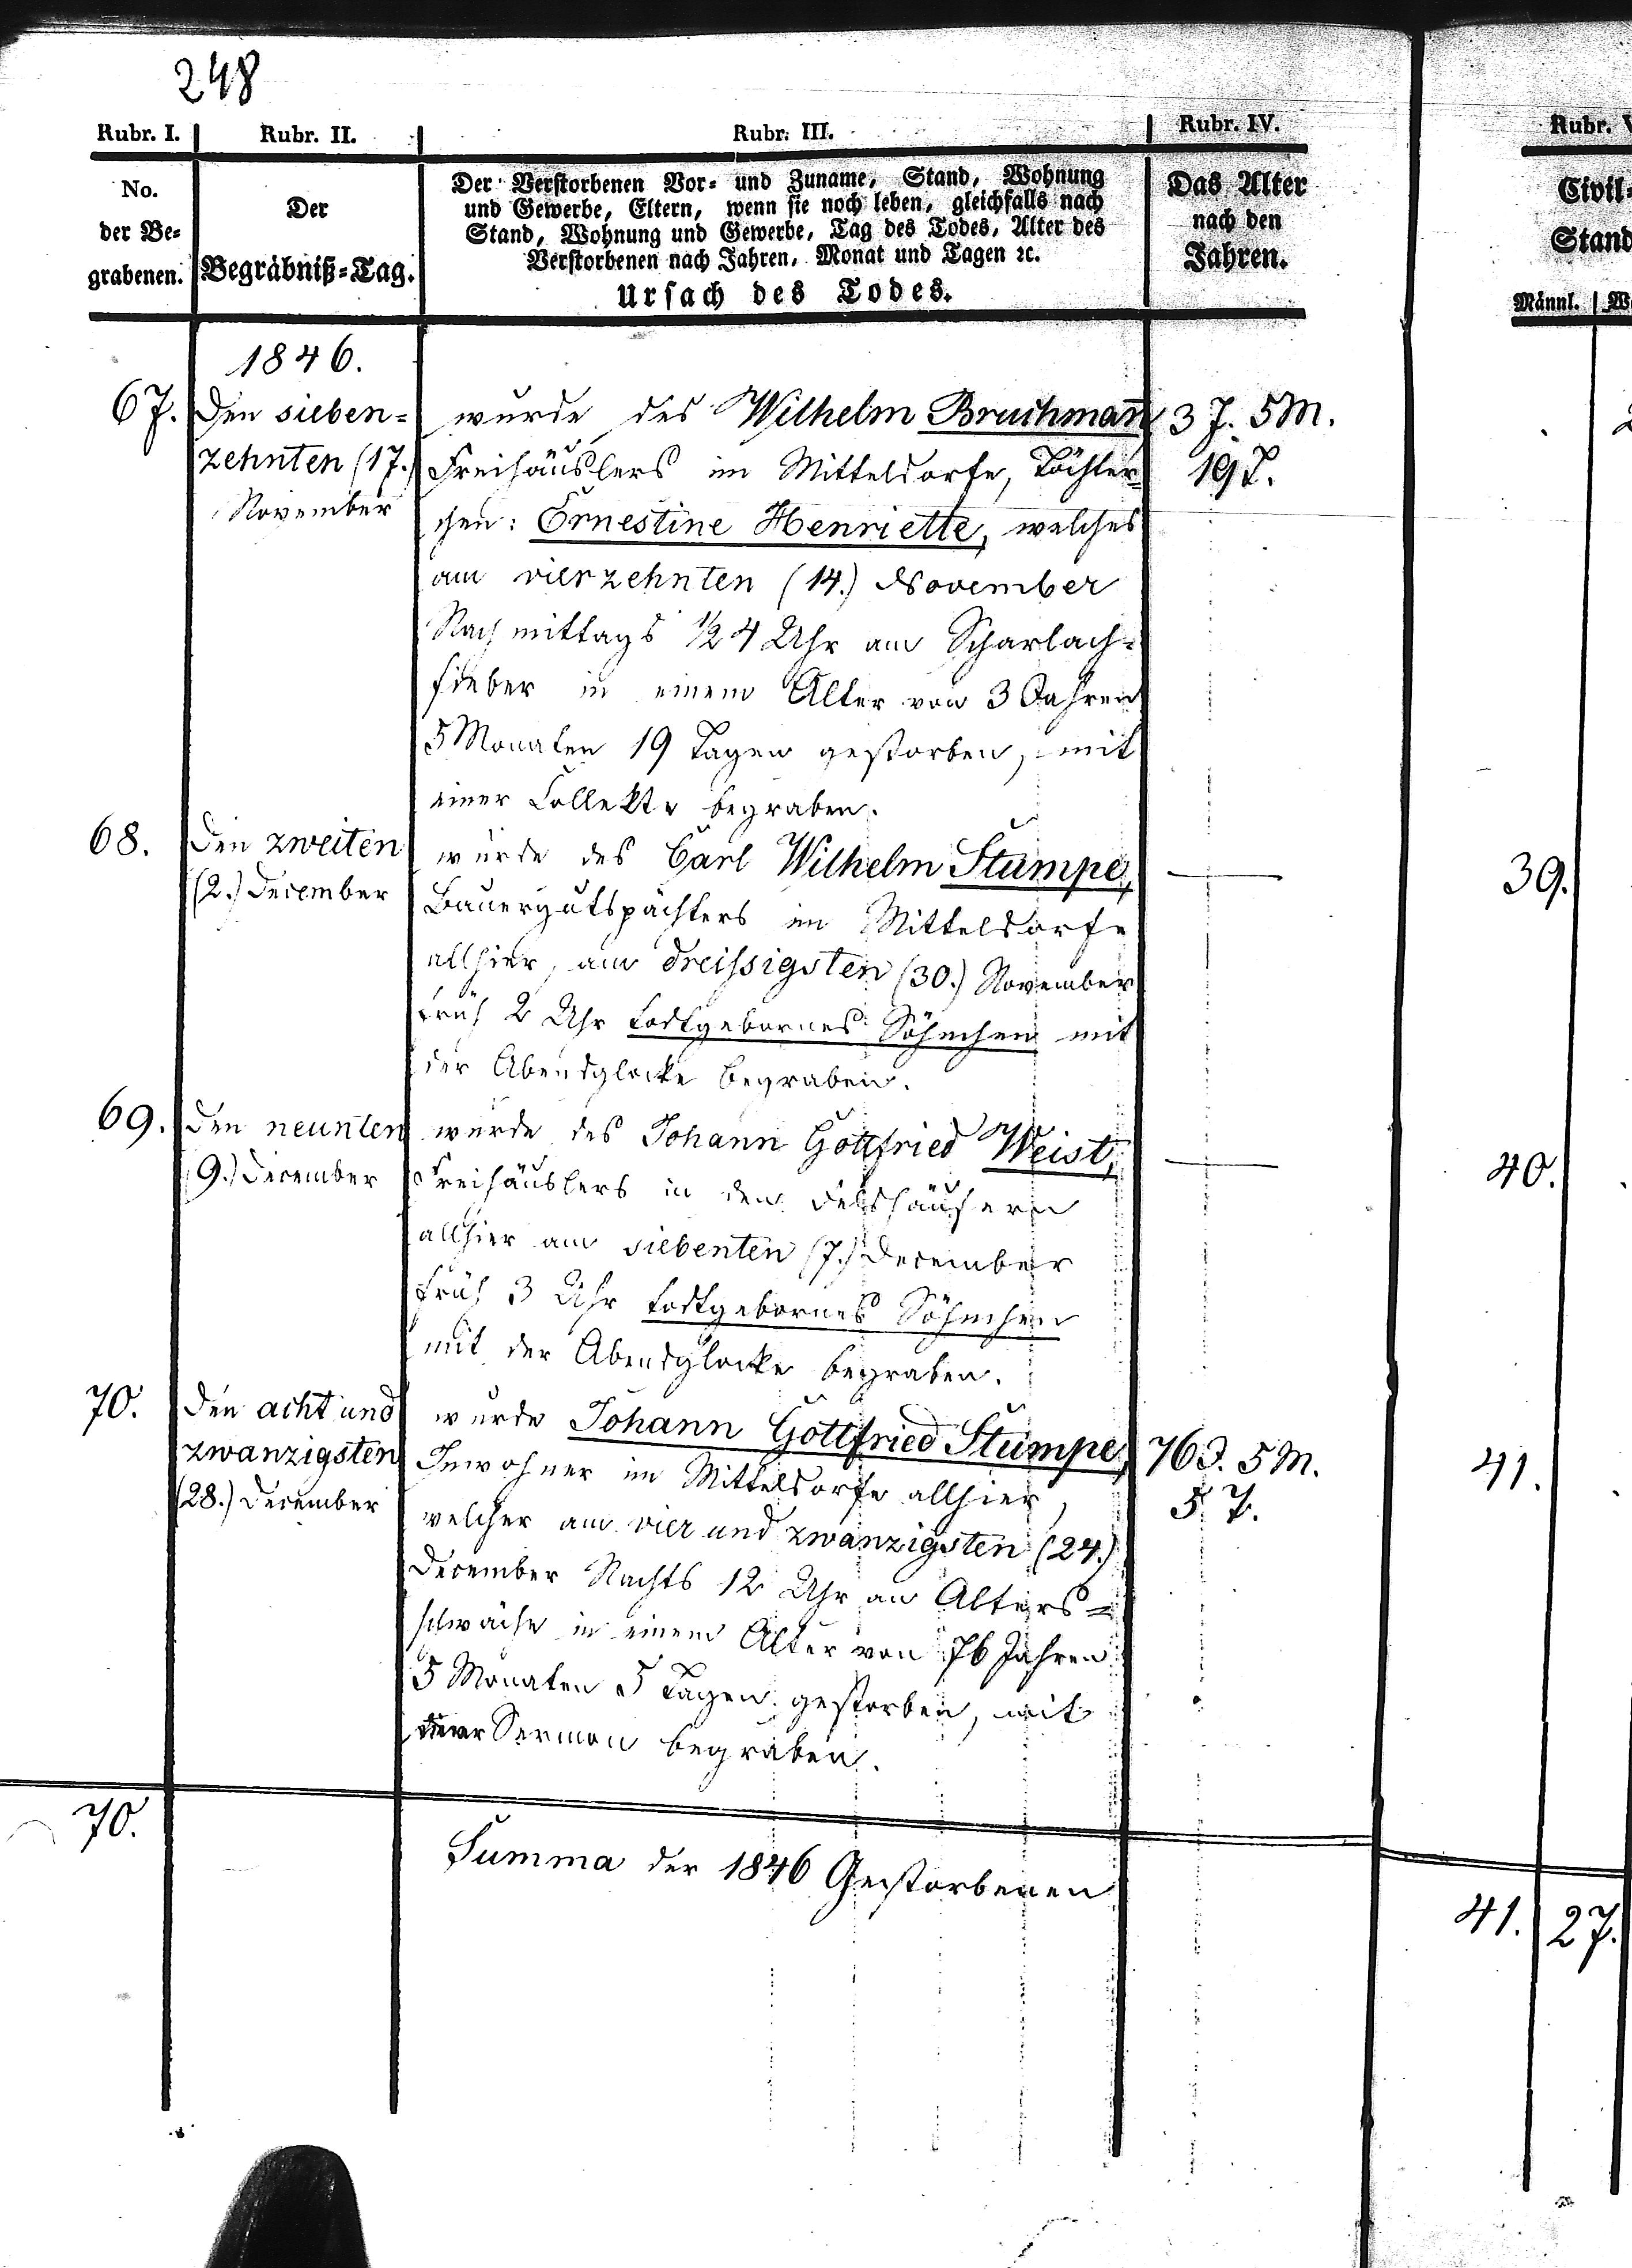 248
Rubr. I.
Rubr. II.
Rubr. III.
Rubr. IV.
Rubr.
No.
der Be=
grabenen.
Der
Begräbniß=Tag.
Der Verstorbenen Vor= und Zuname, Stand, Wohnung
und Gewerbe, Eltern, wenn sie noch leben, gleichfalls nach
Stand, Wohnung und Gewerbe, Tag des Todes, Alter des
Verstorbenen nach Jahren, Monat und Tagen ꝛc.
Ursach des Todes.
Das Alter
nach den
Jahren.
Civil=
Stand
Männl.
1846.
67.
Den sieben=
zehnten (17.)
November
wurde des Wilhelm Bruchman̅
Freihäuslers im Mitteldorfe, Töchter=
chen: Ernestine Henriette, welches
am vierzehnten (14.) November
Nachmittags ½ 4 Uhr am Scharlach=
fieber in einem Alter von 3 Jahren
5 Monaten 19 Tagen gestorben, mit
einer Collekte begraben.
3 J. 5 M.
19 T.
68.
Den zweiten
(2.) December
wurde des Carl Wilhelm Stumpe,
Bauergutspächters im Mitteldorfe
allhier, am dreissigsten (30.) November
früh 2 Uhr todtgebornes Söhnchen mit
der Abendglocke begraben.
39.
69.
Den neunten
(9.) December
wurde des Johann Gottfried Weist,
Freihäuslers in den Feldhäusern
allhier am siebenten (7.) December
früh 3 Uhr todtgebornes Söhnchen
mit der Abendglocke begraben.
40.
70.
Den acht und
zwanzigsten
(28.) December
wurde Johann Gottfried Stumpe,
Inwohner im Mitteldorfe allhier,
welcher am vier und zwanzigsten (24.)
December Nachts 12 Uhr an Alters=
schwäche in einem Alter von 76 Jahren
5 Monaten 5 Tagen gestorben, mit
Sermon begraben.
76 J. 5 M.
5 T.
41.
70.
Summa der 1846 Gestorbenen
41.
27.